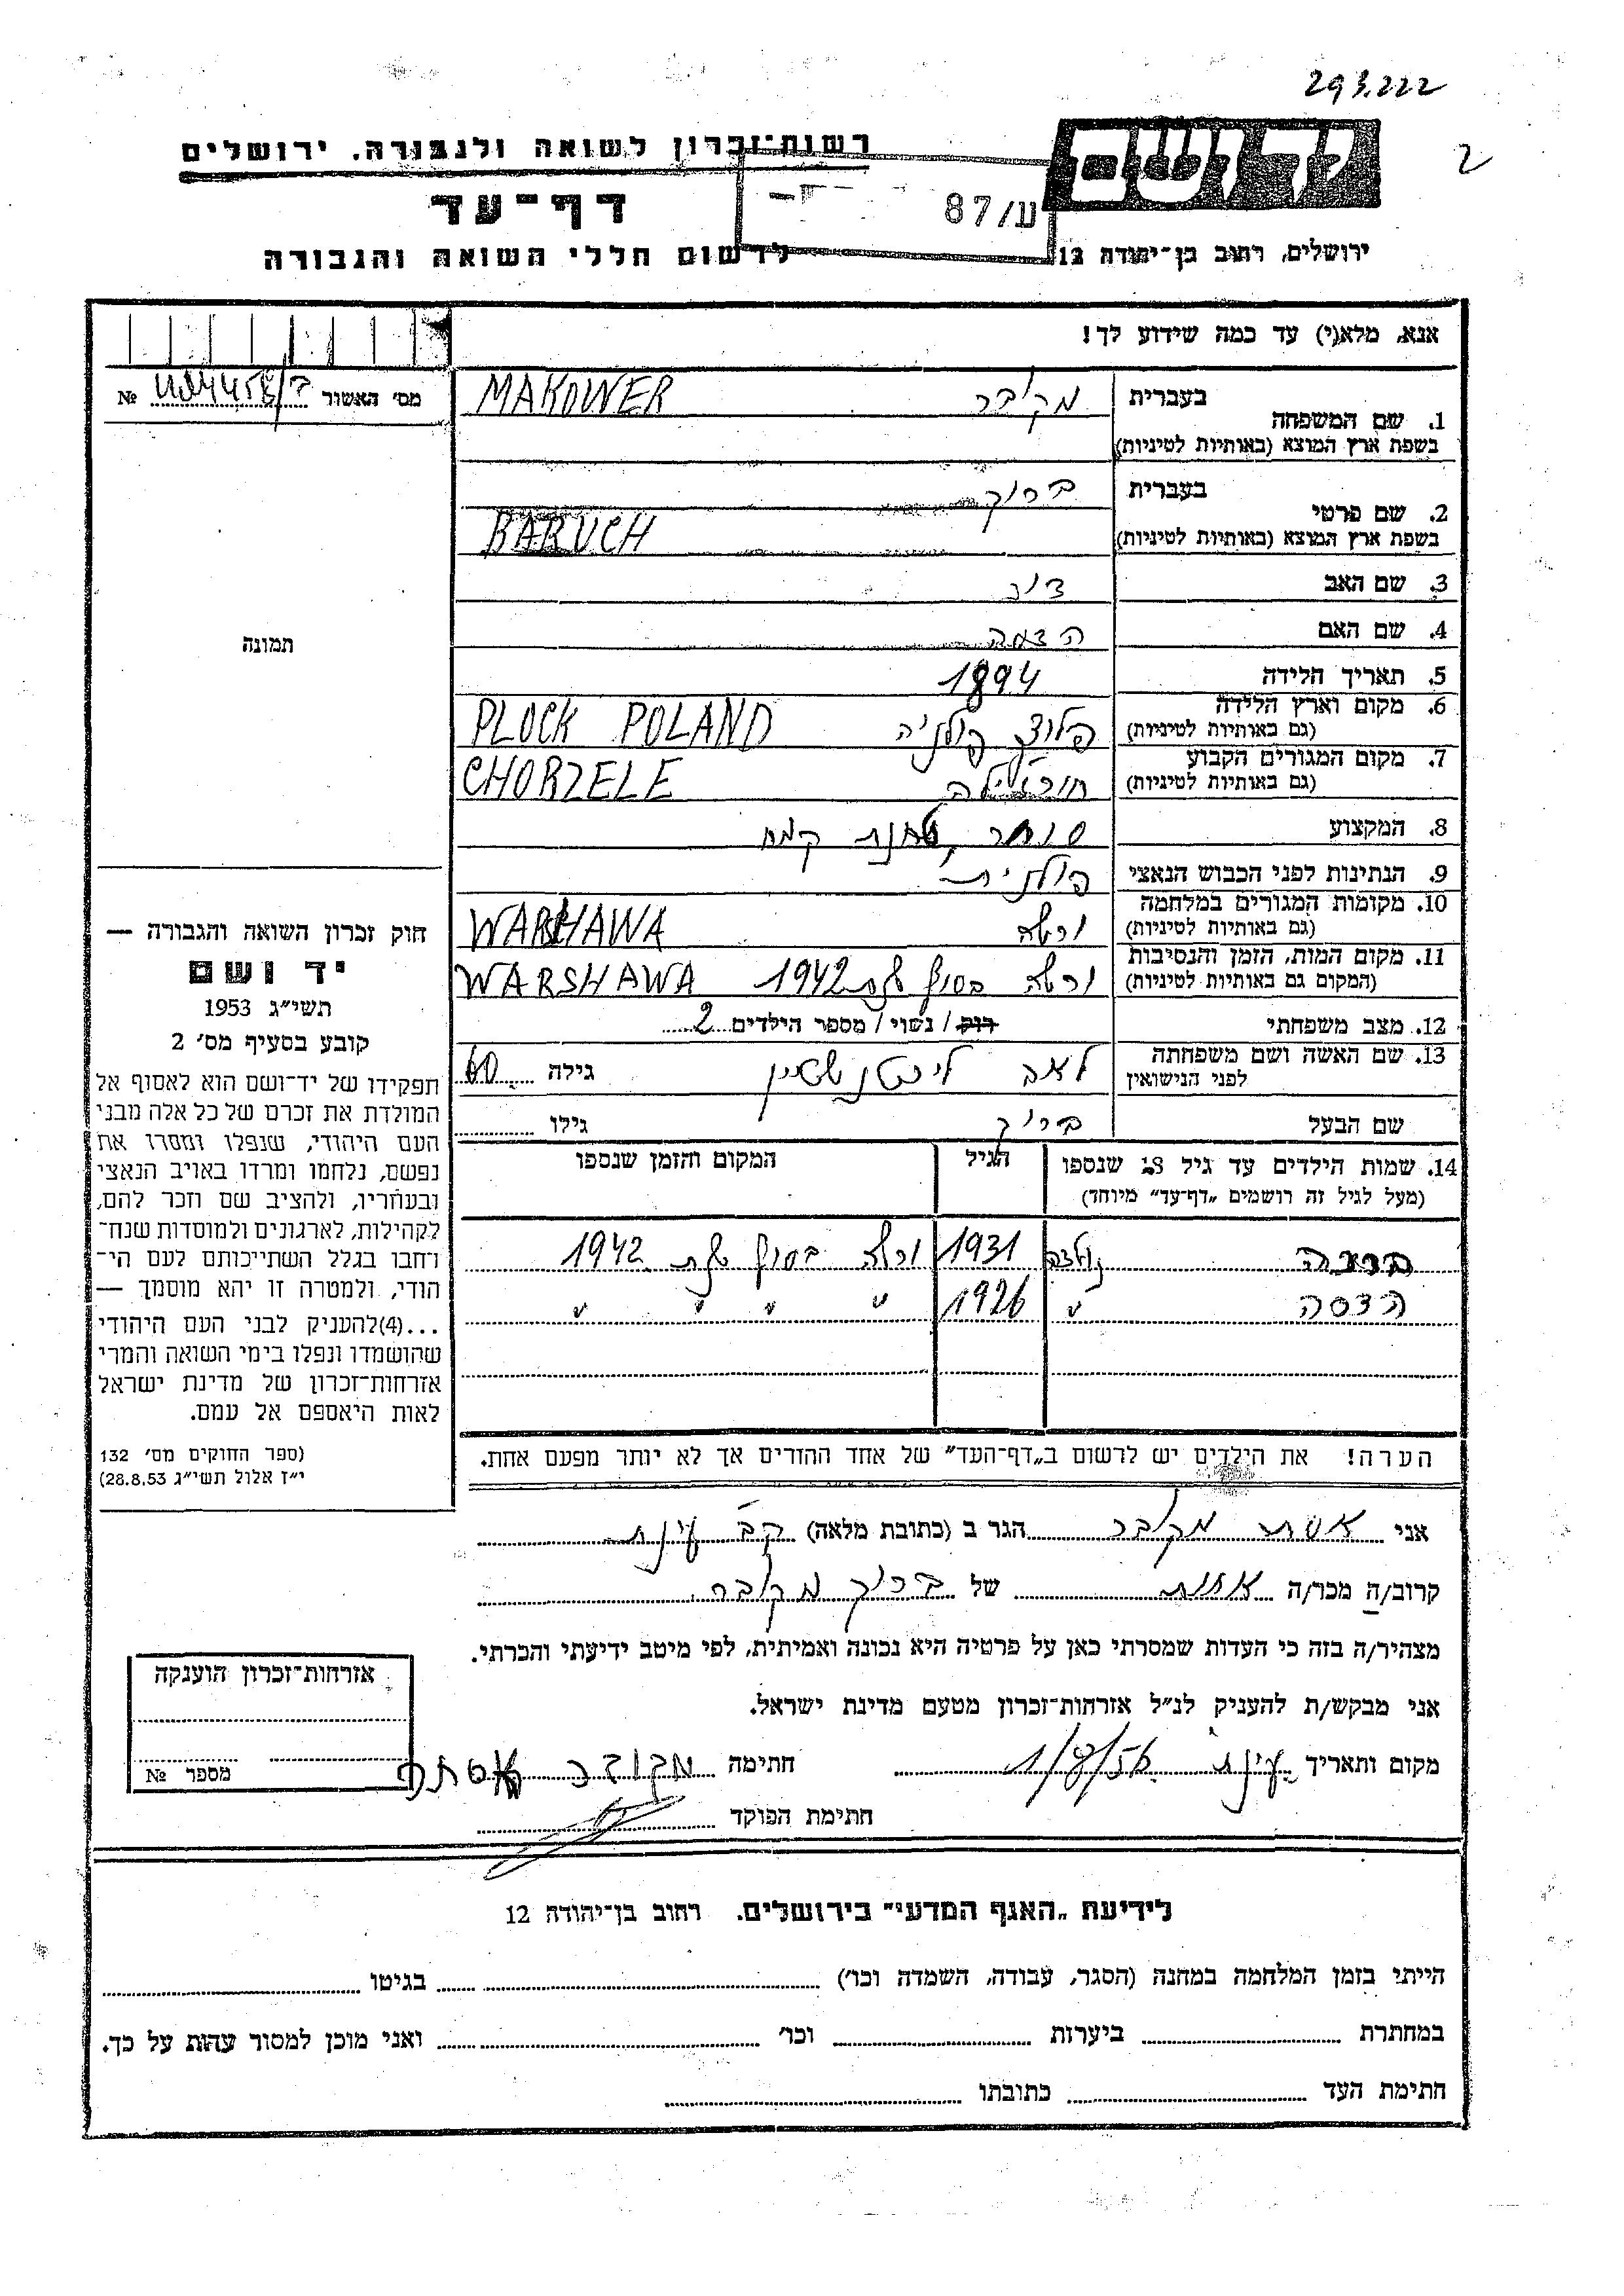 293.222
2
רשות־זכרון לשואה ולגבורה. ירושלים
ידושם
דף־עד
ע/87
לרשום חללי השואה והגבורה
ירושלים, רחוב בן־יהודה 12
אנא, מלא(י) עד כמה שידוע לך!
מס׳ האשור №
1. שם המשפחה בעברית מקובר MAKOWER
בשפת ארץ המוצא (באותיות לטיניות)
2. שם פרטי בעברית ברוך
בשפת ארץ המוצא (באותיות לטיניות) BARUCH
3. שם האב
4. שם האם
5. תאריך הלידה 1894
6. מקום וארץ הלידה פלוצק פולניה PLOCK POLAND
(גם באותיות לטיניות)
7. מקום המגורים הקבוע CHORZELE
(גם באותיות לטיניות)
8. המקצוע סוחר, טחנת קמח
9. הנתינות לפני הכבוש הנאצי פולנית
10. מקומות המגורים במלחמה ורשה WARSHAWA
(גם באותיות לטיניות)
11. מקום המות, הזמן והנסיבות ורשה בסוף שנת 1942 WARSHAWA
(המקום גם באותיות לטיניות)
12. מצב משפחתי רוק / נשוי / מספר הילדים 2
13. שם האשה ושם משפחתה לפני הנישואין ליכטנשטיין גילה
שם הבעל ברוך גילו
14. שמות הילדים עד גיל 18 שנספו הגיל המקום והזמן שנספו
(מעל לגיל זה רושמים „דף־עד״ מיוחד)
נולדה 1931 ורשה בסוף שנת 1942
הדסה " 1926 " " " "
הערה! את הילדים יש לרשום ב„דף־העד״ של אחד ההורים אך לא יותר מפעם אחת.
תמונה
חוק זכרון השואה והגבורה —
יד ושם
תשי״ג 1953
קובע בסעיף מס׳ 2
תפקידו של יד־ושם הוא לאסוף אל
המולדת את זכרם של כל אלה מבני
העם היהודי, שנפלו ומסרו את
נפשם, נלחמו ומרדו באויב הנאצי
ובעוזריו, ולהציב שם וזכר להם,
לקהילות, לארגונים ולמוסדות שנח־
רחבו בגלל השתייכותם לעם הי־
הודי, ולמטרה זו יהא מוסמך —
...(4) להעניק לבני העם היהודי
שהושמדו ונפלו בימי השואה והמרי
אזרחות־זכרון של מדינת ישראל
לאות היאספם אל עמם.
(ספר החוקים מס׳ 132
י״ז אלול תשי״ג 28.8.53)
אני אסתר מקובר הגר ב (כתובת מלאה) קב׳ עינת
קרוב/ה מכר/ה אחות של ברוך מקובר
מצהיר/ה בזה כי העדות שמסרתי כאן על פרטיה היא נכונה ואמיתית, לפי מיטב ידיעתי והכרתי.
אני מבקש/ת להעניק לנ״ל אזרחות־זכרון מטעם מדינת ישראל.
מקום ותאריך עינת 1/8/56 חתימה מקובר אסתר
חתימת הפוקד
אזרחות־זכרון הוענקה
מספר №
לידיעת „האגף המדעי״ בירושלים. רחוב בן־יהודה 12
הייתי בזמן המלחמה במחנה (הסגר, עבודה, השמדה וכו׳) בגיטו
במחתרת ביערות וכו׳ ואני מוכן למסור עדות על כך.
חתימת העד כתובתו